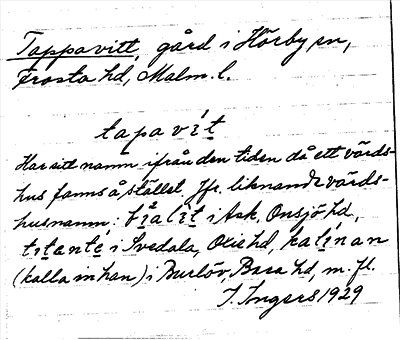 Tappavitt, gård i Hörby sn,
Frosta hd, Malm. l.
tapavít
Har sitt namn ifrån den tiden då ett värds-
hus fanns å stället. Jfr. liknande värds-
husnamn: i Ask, Onsjö hd,
titanté i Svedala, Oxie hd, kalínan
(kalla in han) i Burlöv, Bara hd, m. fl.
I. Ingers 1929